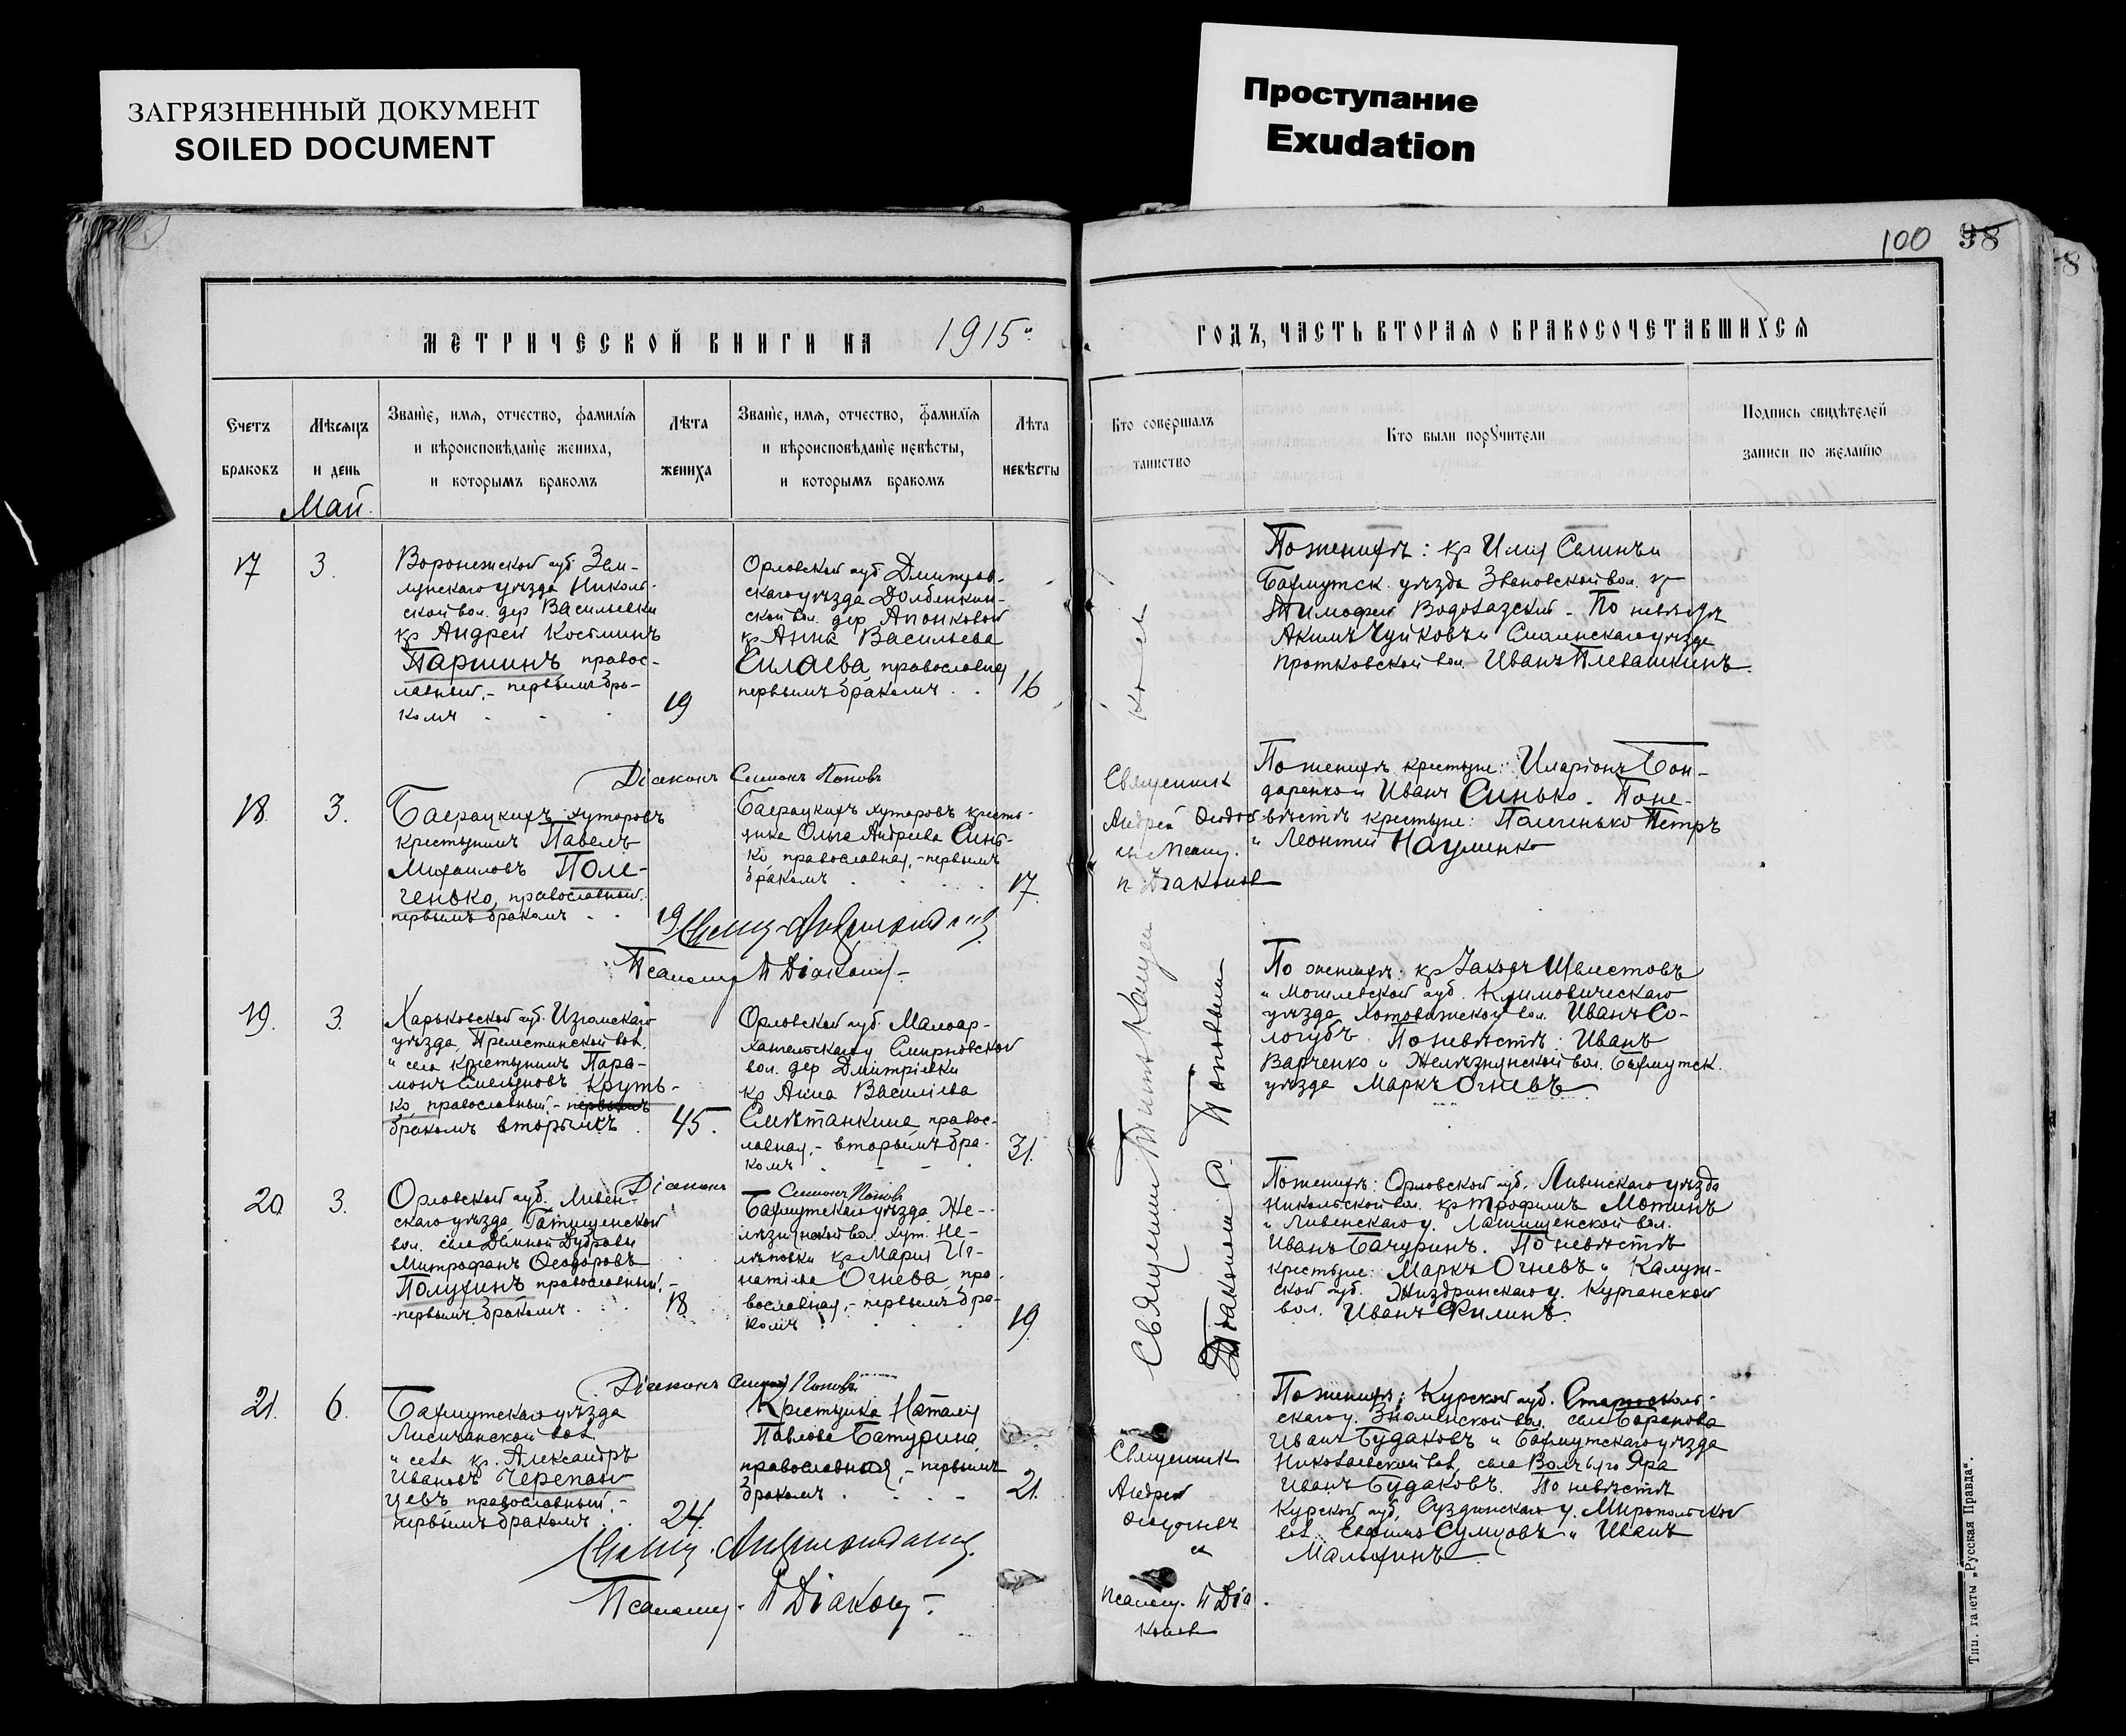 ЗАГРЯЗНЕННЫЙ ДОКУМЕНТ
SOILED DOCUMENT
Проступание
Exudation
100 98
8
МЕТРИЧЕСКОЙ КНИГИ НА 1915
ГОДЪ, ЧАСТЬ ВТОРАЯ О БРАКОСОЧЕТАВШИХСЯ
Счетъ
браковъ
Мѣсяцъ
и день
Званіе, имя, отчество, фамилія
и вѣроисповѣданіе жениха,
и которымъ бракомъ
Лѣта
жениха
Званіе, имя, отчество, фамилія
и вѣроисповѣданіе невѣсты,
и которымъ бракомъ
Лѣта
невѣсты
Кто совершалъ
таинство
Кто были поручители
Подпись свидѣтелей
записи по желанію
Май.
17
3.
Воронежской губ. Зем-
лянскаго уѣзда Николь-
ской вол. дер Васильевки
кр Андрей Костминъ
Паршинъ правос-
лавный, - первымъ бра-
комъ
19
Орловской губ Дмитров-
скаго уѣзда Долбенкин-
ской вол. дер Апонковой
кр Анна Васильева
Силаева, православная
первымъ бракомъ
16
По женихѣ: кр Илия
Бахмутск. уѣзда Звановской вол. кр
Тимофей Водолазский - По невѣстѣ
Акимъ Чуйковъ и Смоленскаго уѣзда
Протковской вол. Иванъ Плевашкинъ.
Діаконъ Симонъ Поповъ
18.
3.
Баерацкихъ хуторовъ
крестьянинъ Павелъ
Михаиловъ Поле-
ченько, православный.
первымъ бракомъ
19
Баерацкихъ хуторовъ кресть-
янка Ольга Андреева Синь-
ко, православная, - первымъ
бракомъ
17.
Священникъ
Андрей
и Псалм.
П. Діаконов
По женихѣ крестьяне: Иларіонъ Бон-
даренко и Иванъ Синько. По не-
вѣстѣ крестьяне: Полеченько Петръ
и Леонтий Науменко
Псаломщ П Діаконъ -
19.
3.
Харьковской губ. Изюмскаго
уѣзда, Прелестинской вол.
" села крестьянинъ Пара-
монъ Емельяновъ Круть-
ко, православный, - первымъ
бракомъ вторымъ
45.
Орловской губ. Малоар-
хангельскаго у Смирновской
вол. дер Дмитріевки
кр Анна Василіева
Смѣтанкина правос-
лавная, - вторымъ бра-
комъ
31.
По женихѣ: кр Яковъ Шелистовъ
и Могилевской губ. Климовическаго
уѣзда Хотовижской вол. Иванъ Со-
логубъ. По невѣстѣ: Иванъ
Варченко и Желѣзнянской вол. Бахмутск.
уѣзда Маркъ Огневъ
Діаконъ
Симонъ Поповъ
20
3.
Орловской губ. Ливен-
скаго уѣзда, Гатищенской
вол. села Дѣминой Дубравы
Митрофанъ Ѳеодоровъ
Полухинъ православный, -
первымъ бракомъ
18
Бахмутскаго уѣзда Же-
лѣзнянской вол. хут. Не-
лѣповки кр Марія Иг-
натіева Огнева, пра-
вославная, - первымъ бра-
комъ
19
Священник
Діаконом С. Поповым
По женихѣ: Орловской губ. Ливенскаго уѣзда
Никольской вол. кр Трофимъ Мотинъ
и Ливенскаго у. Гатищенской вол.
Иванъ Бачуринъ. По невѣстѣ
крестьяне: Маркъ Огневъ и Калуж-
ской губ. Жиздринскаго у. Курганской
вол. Иванъ Филинъ.
Діаконъ Симонъ Поповъ
21.
6.
Бахмутскаго уѣзда
Лисичанской вол.
" села кр. Александръ
Ивановъ Черепан-
цевъ православный, -
первымъ бракомъ
24.
Крестьянка Наталія
Павлова Батурина
православная, - первымъ
бракомъ
21.
Священникъ
Андрей
и
Псалом. П Діа-
конов
По женихѣ: Курской губ. Староосколь-
скаго у. Знаменской вол. села Баранова
Иванъ Будаковъ и Бахмутскаго уѣзда
Николаевской вол. села Волчьяго Яра
Иванъ Будаковъ. По невѣстѣ
Курской губ. Суджанскаго у. Миропольской
вол. Евфимъ Сумцовъ и Иванъ
Малыхинъ
Псаломщ. П Діаконъ -
Тип. газеты „Русская Правда“.